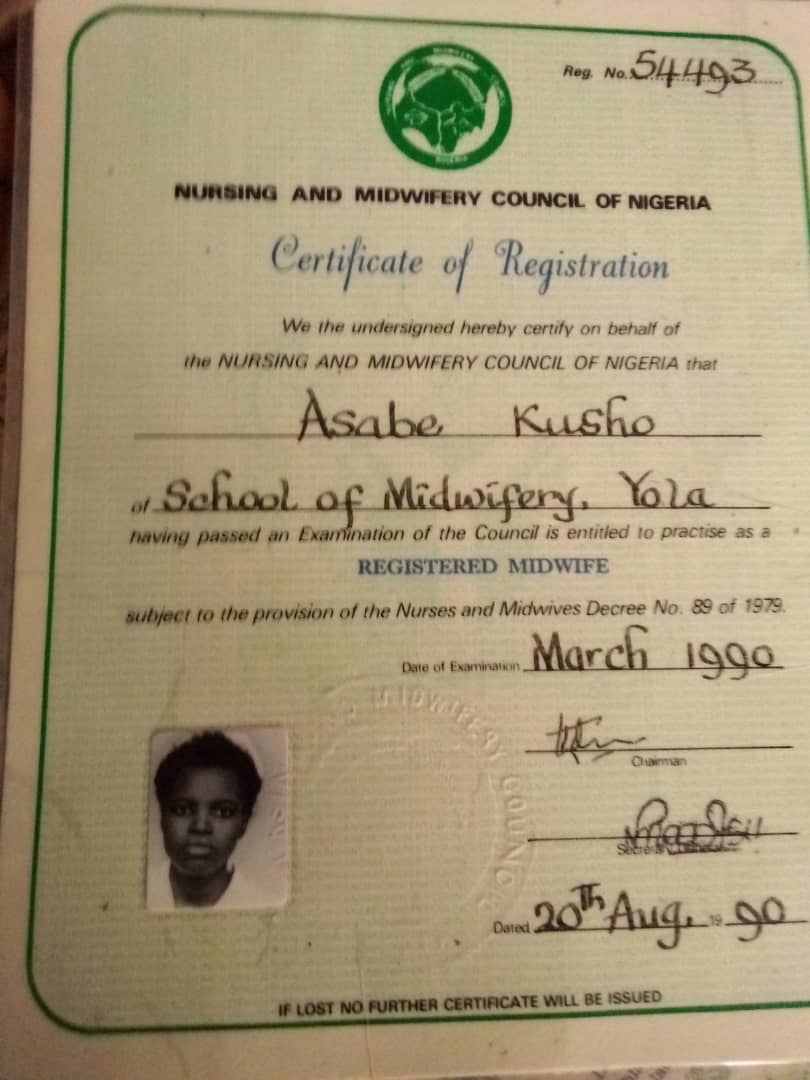 Reg. No. 54493
NURSING AND MIDWIFERY COUNCIL OF NIGERIA
Certificate of Registration
We the undersigned hereby certify on behalf of
the NURSING AND MIDWIFERY COUNCIL OF NIGERIA that
Asabe Kusho
of School of Midwifery, Yola
having passed an Examination of the Council is entitled to practise as a
REGISTERED MIDWIFE
subject to the provision of the Nurses and Midwives Decree No. 89 of 1979.
Date of Examination March 1990
MIDWIFERY COUNC
Chairman
Dated 20TH Aug. 19 90
IF LOST NO FURTHER CERTIFICATE WILL BE ISSUED